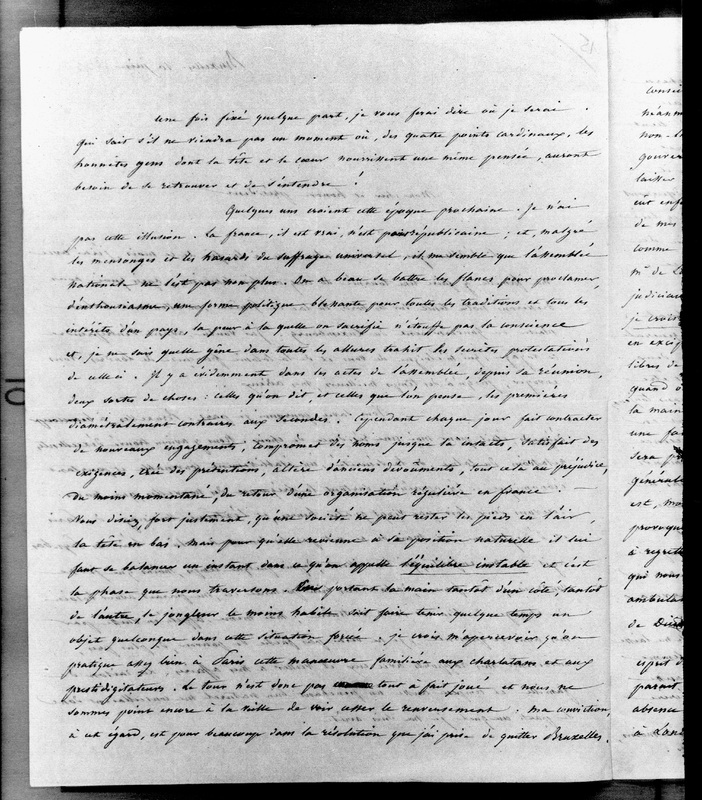 15
une fois fixé quelque part, je vous ferai dire où je serai.
Qui sait s'il ne viendra pas un moment où, des quatre points cardinaux, les
honnêtes gens dont la tête et le cœur nourrissent une même pensée, auront
besoin de se retrouver et de s'entendre !
Quelques uns croient cette époque prochaine. Je n'ai
pas cette illusion. La france, il est vrai, n'est pas républicaine ; et, malgré
les mensonges et les hasards du suffrage universel, il me semble que l'assemblée
nationale ne l'est pas non plus. On a beau se battre les flancs pour proclamer,
d'enthousiasme, une forme politique blessante pour toutes les traditions et tous les
intérêts d'un pays, la peur à la quelle on sacrifie n'étouffe pas la conscience
et, je ne sais quelle gêne dans toutes les allures trahit les secrètes protestations
de celle ci. Il y a évidemment dans les actes de l'assemblée, depuis sa réunion,
deux sortes de choses : celles qu'on dit, et celles que l'on pense, les premières
diamétralement contraires aux secondes. Cependant chaque jour fait contracter
de nouveaux engagements, compromet des noms jusque là intacts, satisfait des
exigences, crée des prétentions, altère d'anciens dévoûments, tout cela au préjudice,
du moins momentané, du retour d'une organisation régulière en france.
Vous disiez, fort justement, qu'une société ne peut rester les pieds en l'air,
la tête en bas. Mais pour qu'elle revienne à sa position naturelle il lui
faut se balancer un instant dans ce qu'on appelle l'équilibre instable et c'est
la phase que nous traversons. portant sa main tantôt d'un côté, tantôt
de l'autre, le jongleur le moins habile sait faire tenir quelque temps un
objet quelconque dans cette situation forcée. je crois m'apercevoir qu'on
pratique assez bien à Paris cette manœuvre familière aux charlatans et aux
prestidigitateurs. Le tour n'est donc pas tout à fait joué et nous ne
sommes point encore à la veille de voir cesser le renversement : ma conviction,
à cet égard, est pour beaucoup dans la résolution que j'ai prise de quitter Bruxelles.
non-
de mes
comme
je crois
libres de
la main
une
sera
est,
à
qui nous
de
esprit
absence
à